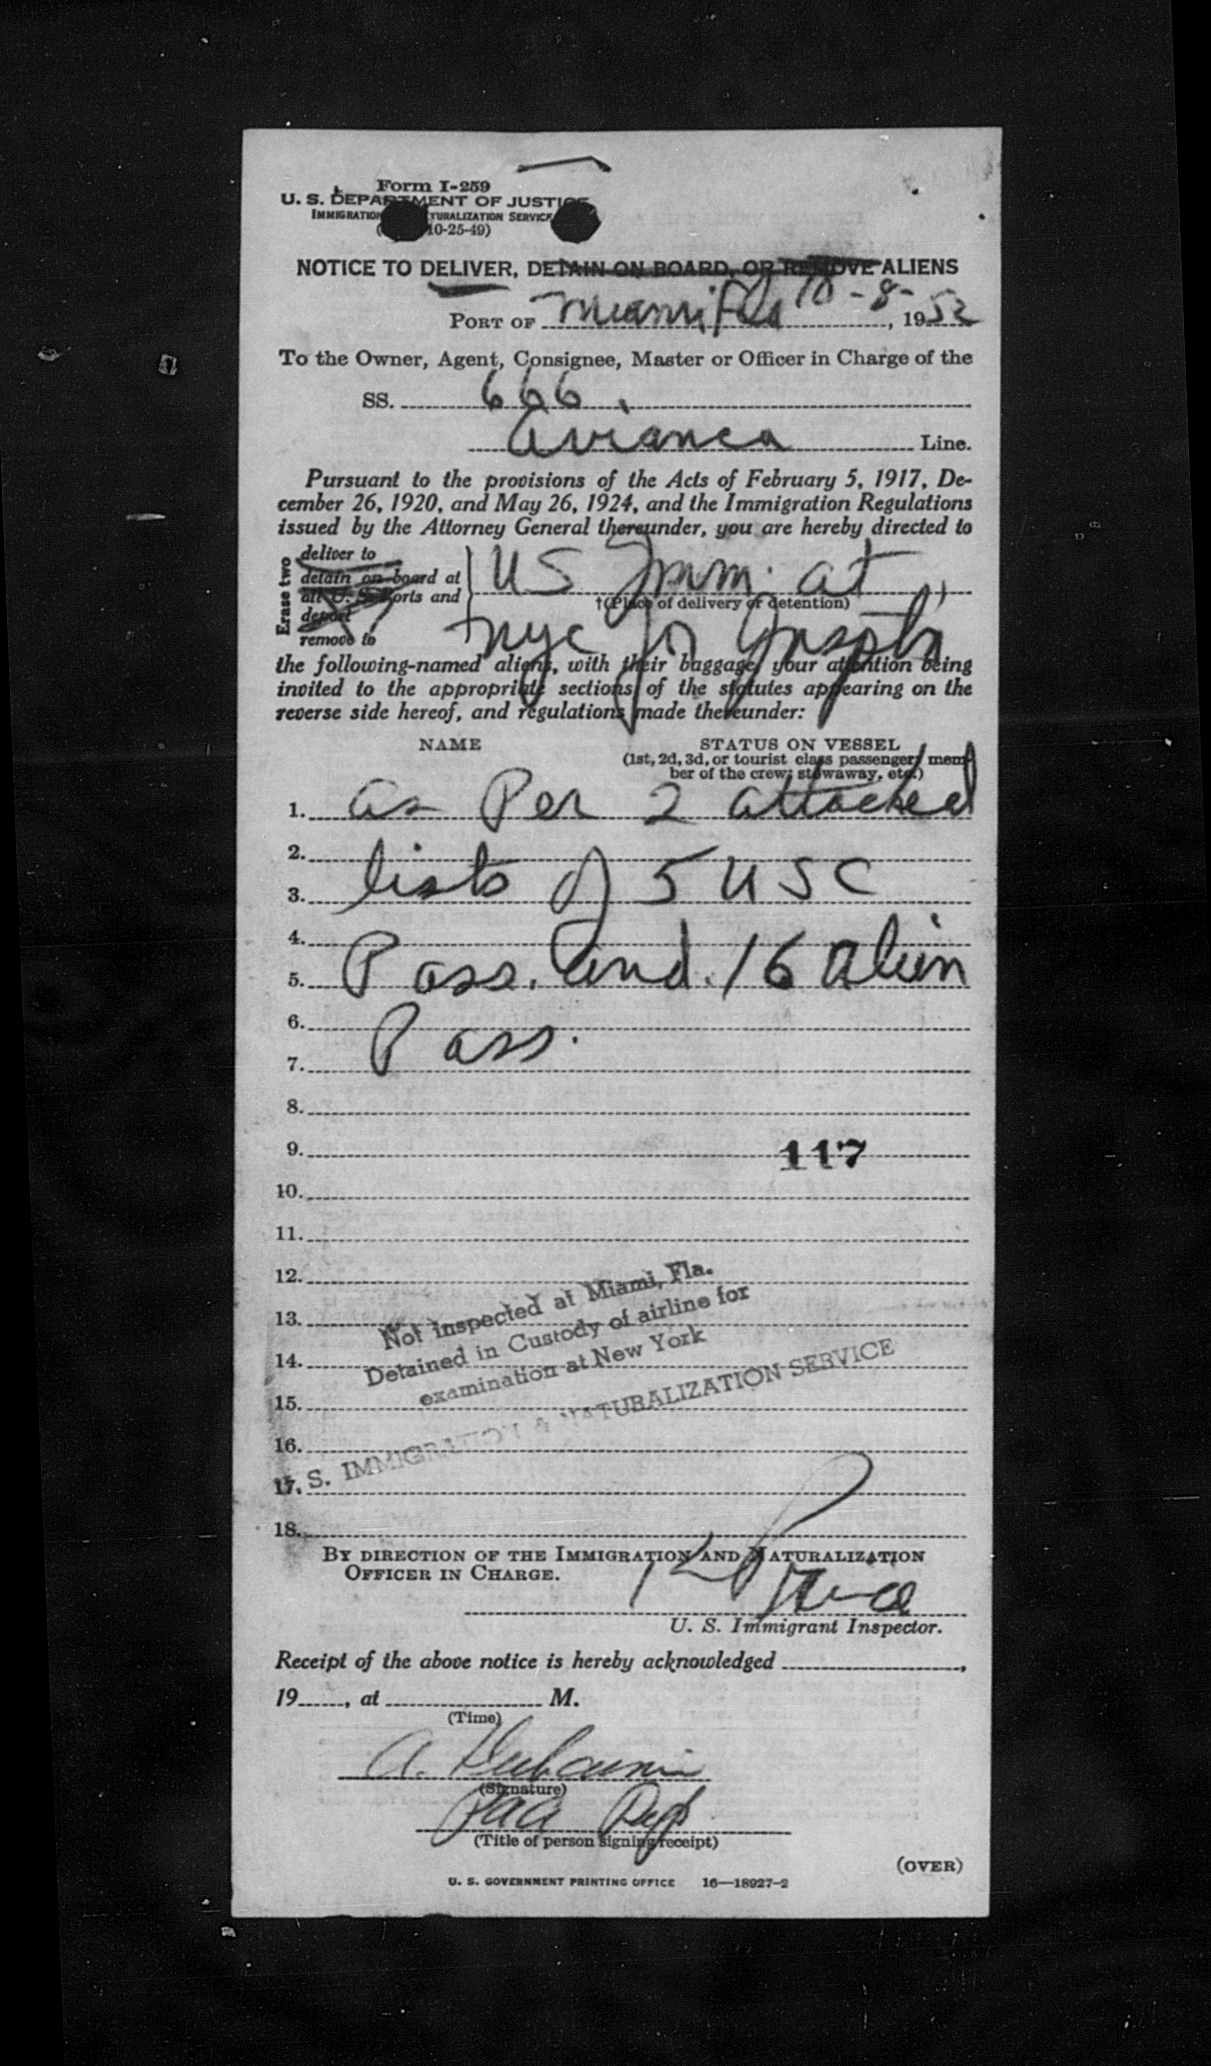 Form I-259
U. S. DEPARTMENT OF JUSTICE
IMMIGRATION NATURALIZATION SERVICE
10-25-49)
NOTICE TO DELIVER, DETAIN ON BOARD, OR REMOVE ALIENS
PORT OF Miami Fla 10-8-, 1952
To the Owner, Agent, Consignee, Master or Officer in Charge of the
SS. 666.
Avianca Line.
Pursuant to the provisions of the Acts of February 5, 1917, De-
cember 26, 1920, and May 26, 1924, and the Immigration Regulations
issued by the Attorney General thereunder, you are hereby directed to
Erase two
deliver to
detain on board at
all U. S. Ports and
deport
remove to
US Imm. at
†(Place of delivery or detention)
nyc for Inspth
the following-named aliens, with their baggage, your attention being
invited to the appropriate sections of the statutes appearing on the
reverse side hereof, and regulations made thereunder:
NAME
STATUS ON VESSEL
(1st, 2d, 3d, or tourist class passenger, mem-
ber of the crew; stowaway, etc.)
1. as Per 2 attached
2.
3. lists of 5 USC
4.
5. Pass. and. 16 alien
6.
7. Pass.
8.
9. 117
10.
11.
12.
13.
14.
15.
16.
17.
18.
Not inspected at Miami, Fla.
Detained in Custody of airline for
examination at New York
U. S. IMMIGRATION & NATURALIZATION SERVICE
BY DIRECTION OF THE IMMIGRATION AND NATURALIZATION
OFFICER IN CHARGE.
U. S. Immigrant Inspector.
Receipt of the above notice is hereby acknowledged ,
19 , at M.
(Time)
A.
(Signature)
PAA Rep
(Title of person signing receipt)
(OVER)
U. S. GOVERNMENT PRINTING OFFICE 16—18927-2